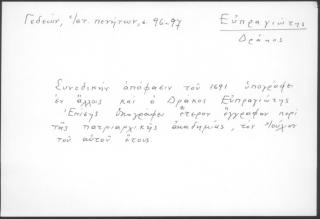 Γεδεών, Πατ. πενήτων, σ. 96-97
Εὐπραγιώτης
Δράκος
Συνοδικὴν ἀπόφασιν τοῦ 1691 ὑπογράφει
ἐν ἄλλοις καὶ ὁ Δράκος Εὐπραγιώτης
Ἐπίσης ὑπογράφει ἕτερον ἔγγραφον περὶ
τῆς πατριαρχικῆς ἀκαδημίας, τὸν Ἰούλιον
τοῦ αὐτοῦ ἔτους.